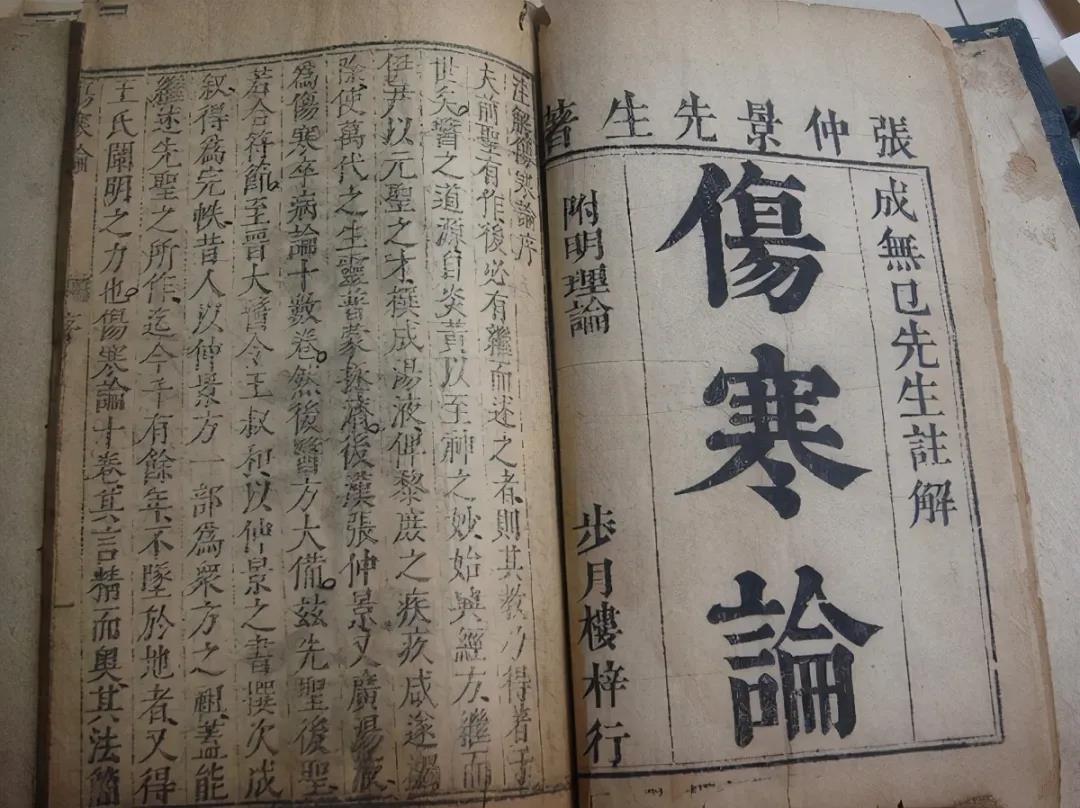 張仲景先生著
成無已先生註解
傷寒論
附明理論
步月樓梓行
注解傷寒論序
夫前聖有作後必有繼而述之者則其教乃得著于
世矣醫之道源自炎黃以至神之妙始興經方繼而
伊尹以元聖之才撰成湯液俾黎庶之疾疚咸遂蠲
除使萬代之生靈普蒙拯濟後漢張仲景又廣湯液
為傷寒卒病論十數卷然後醫方大備茲先聖後聖
若合符節至晉大醫令王叔和以仲景之書撰次成
叙得為完帙昔人以仲景方一部為衆方之祖蓋能
繼述先聖之所作迄今千有餘年不墜於地者又得
王氏闡明之力也傷寒論十卷其言精而奥其法簡